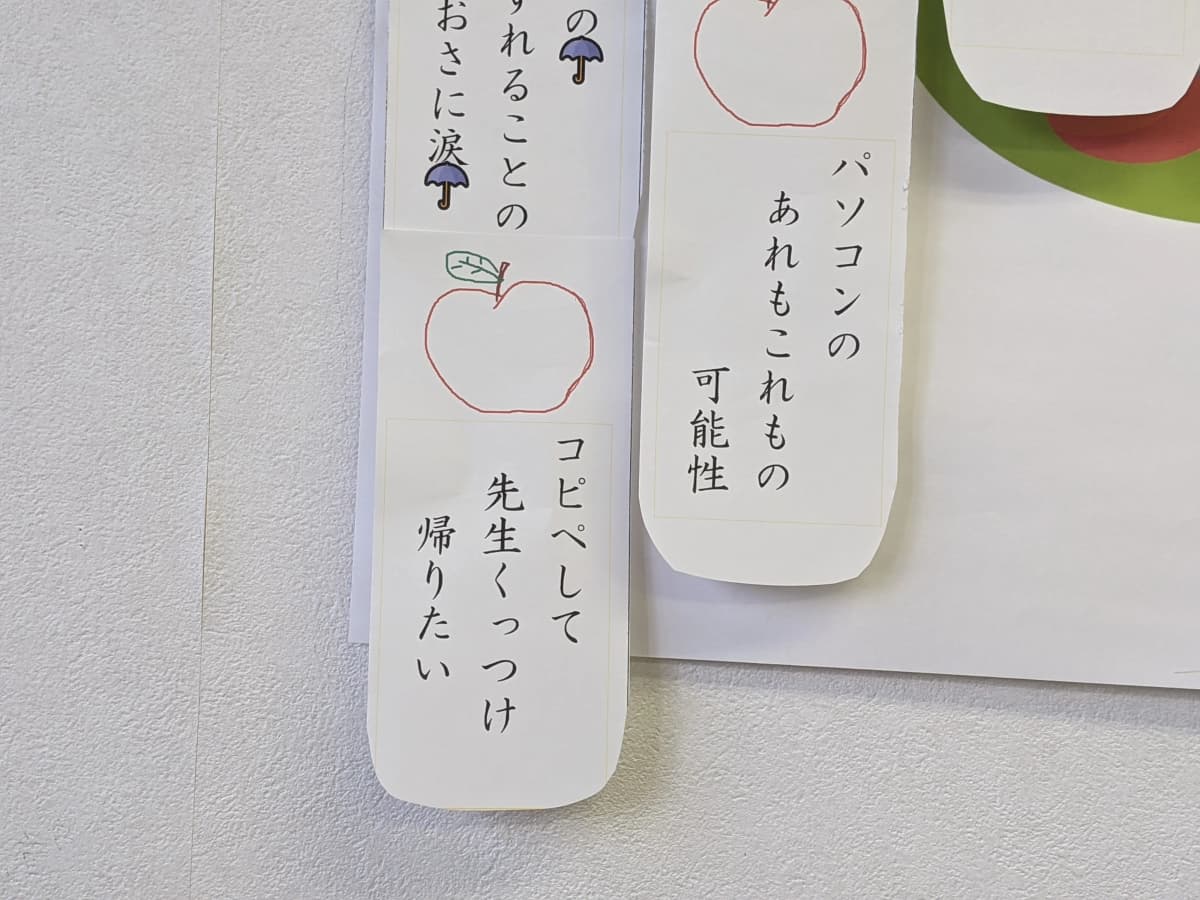 パソコンの
あれもこれもの
可能性
の☂
すれることの
おさに涙☂
コピペして
先生くっつけ
帰りたい